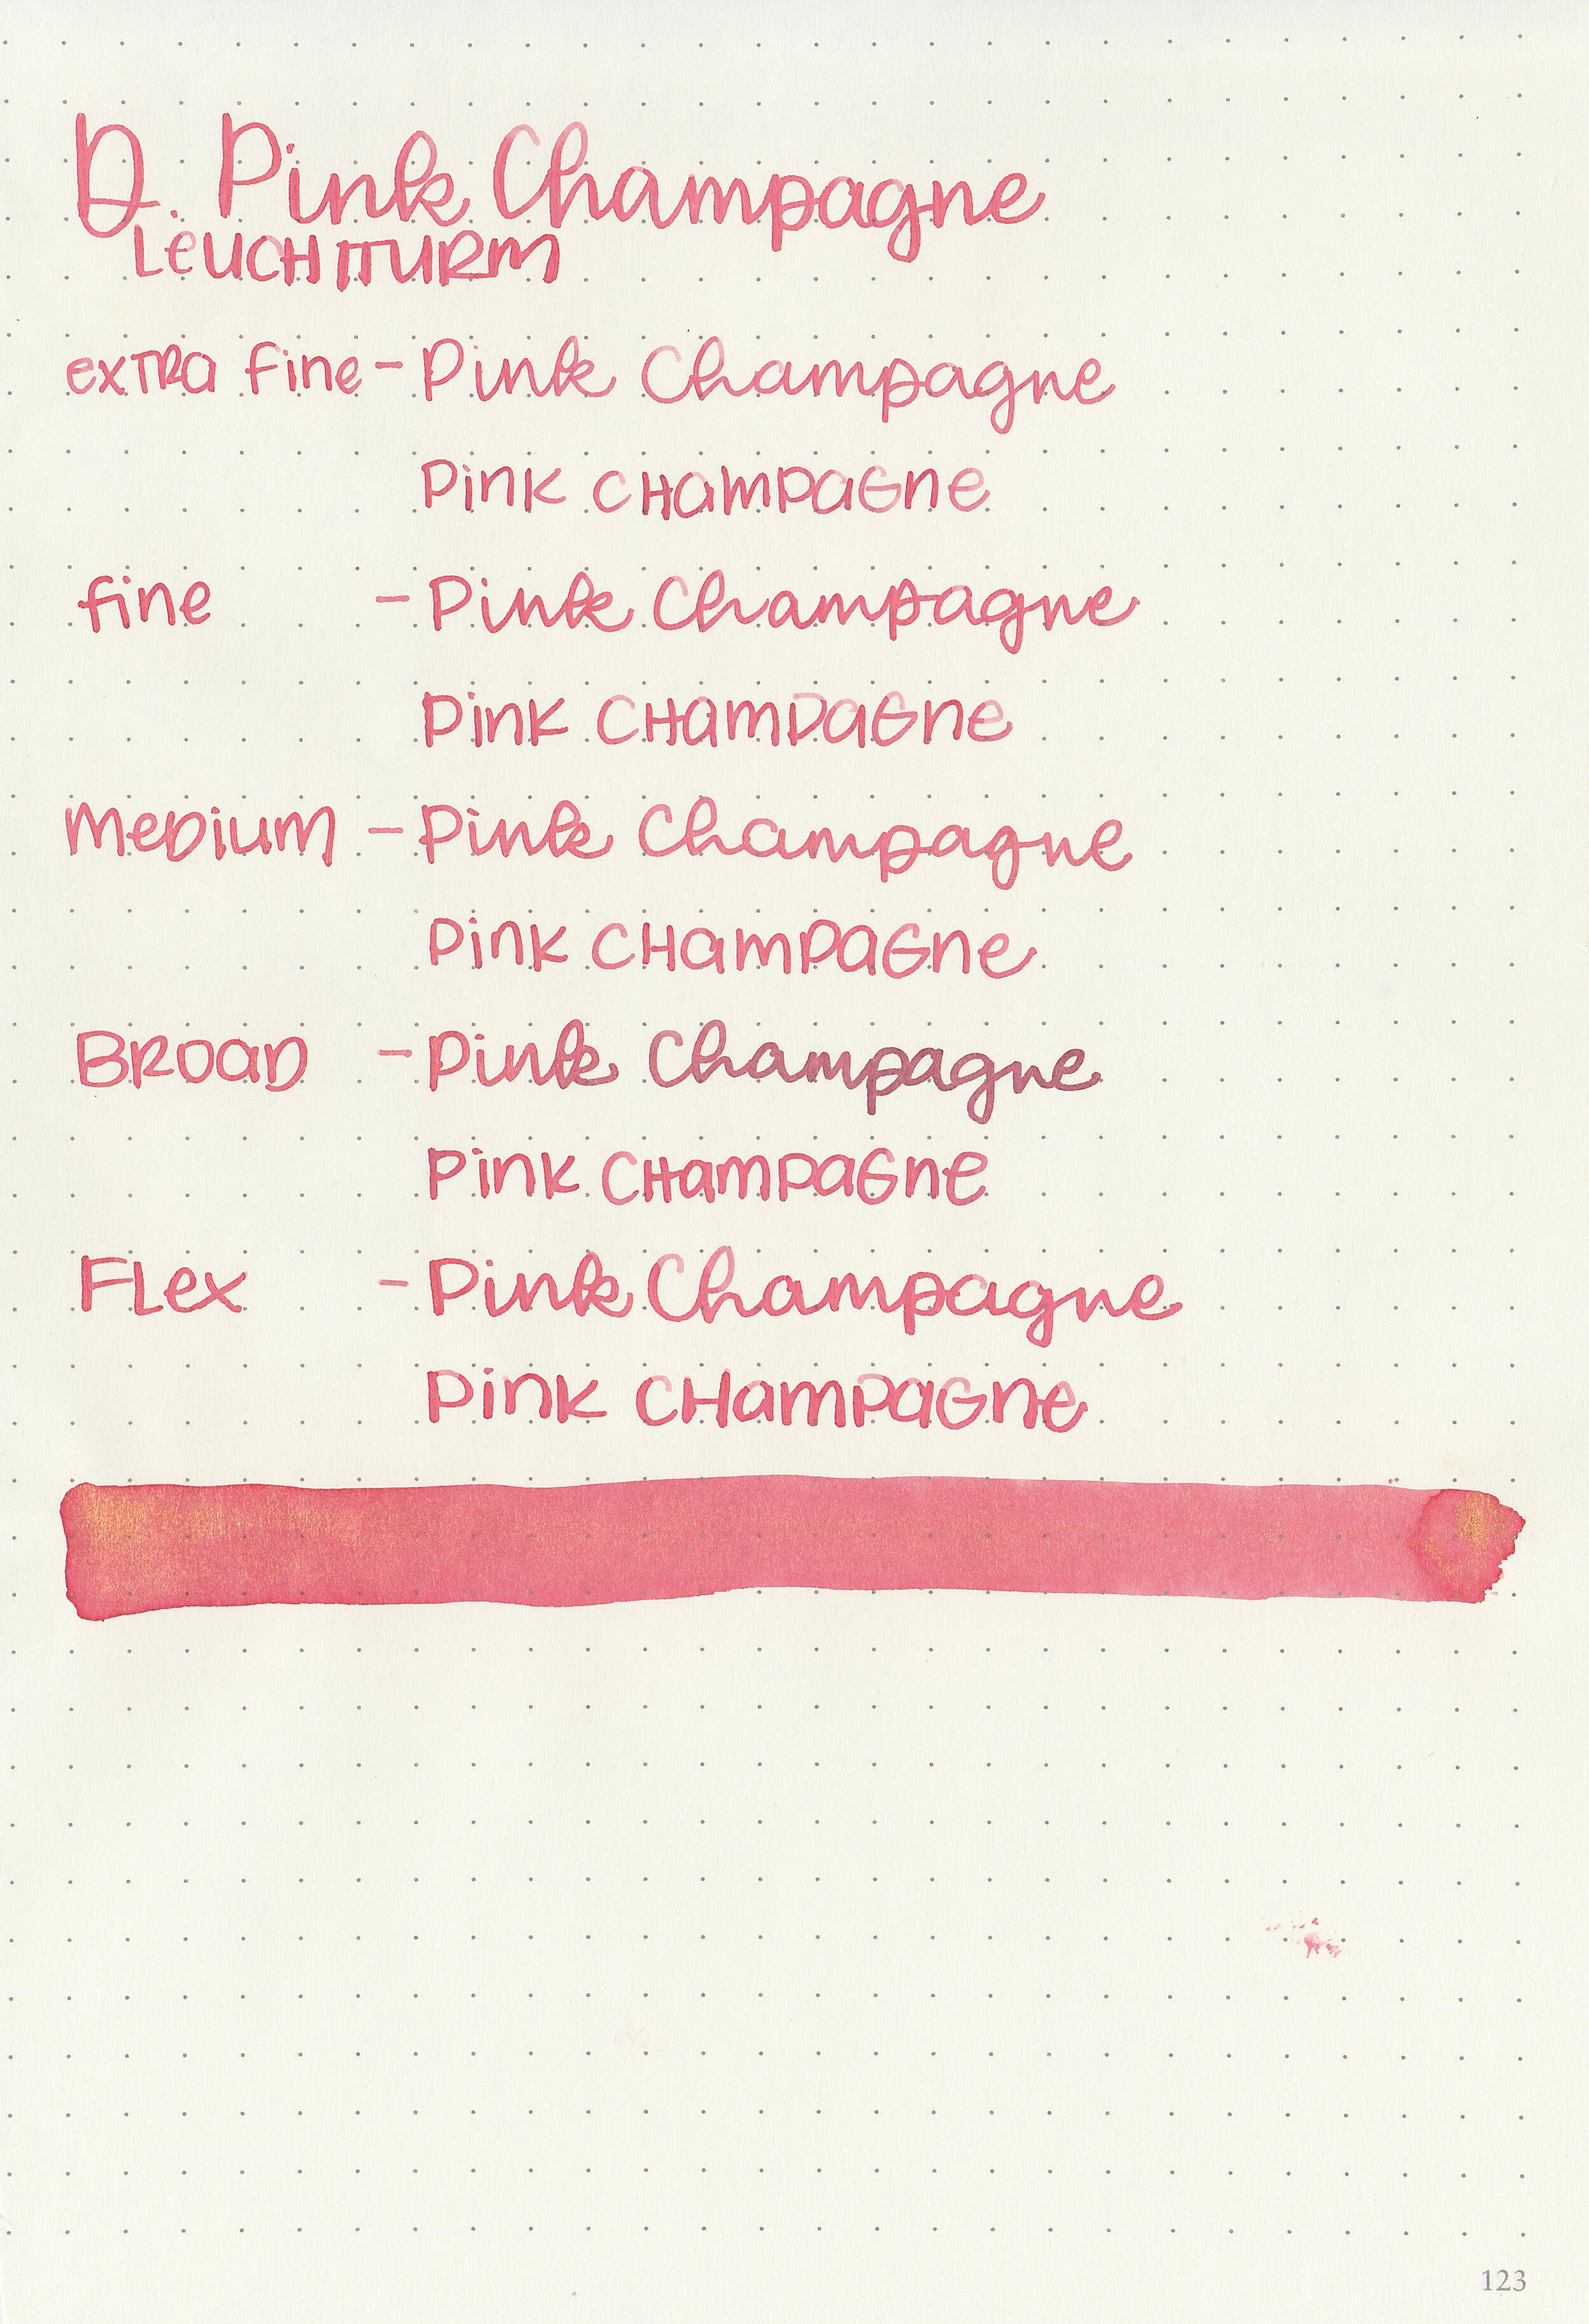 D. Pink Champagne
LeUCHTTURM
exTRa fine - Pink Champagne
Pink CHamPaGne
fine - Pink Champagne
Pink CHamPaGne
Medium - Pink Champagne
Pink CHamPaGne
BRoaD - Pink Champagne
Pink CHamPaGne
FLex - Pink Champagne
Pink CHamPaGne
123